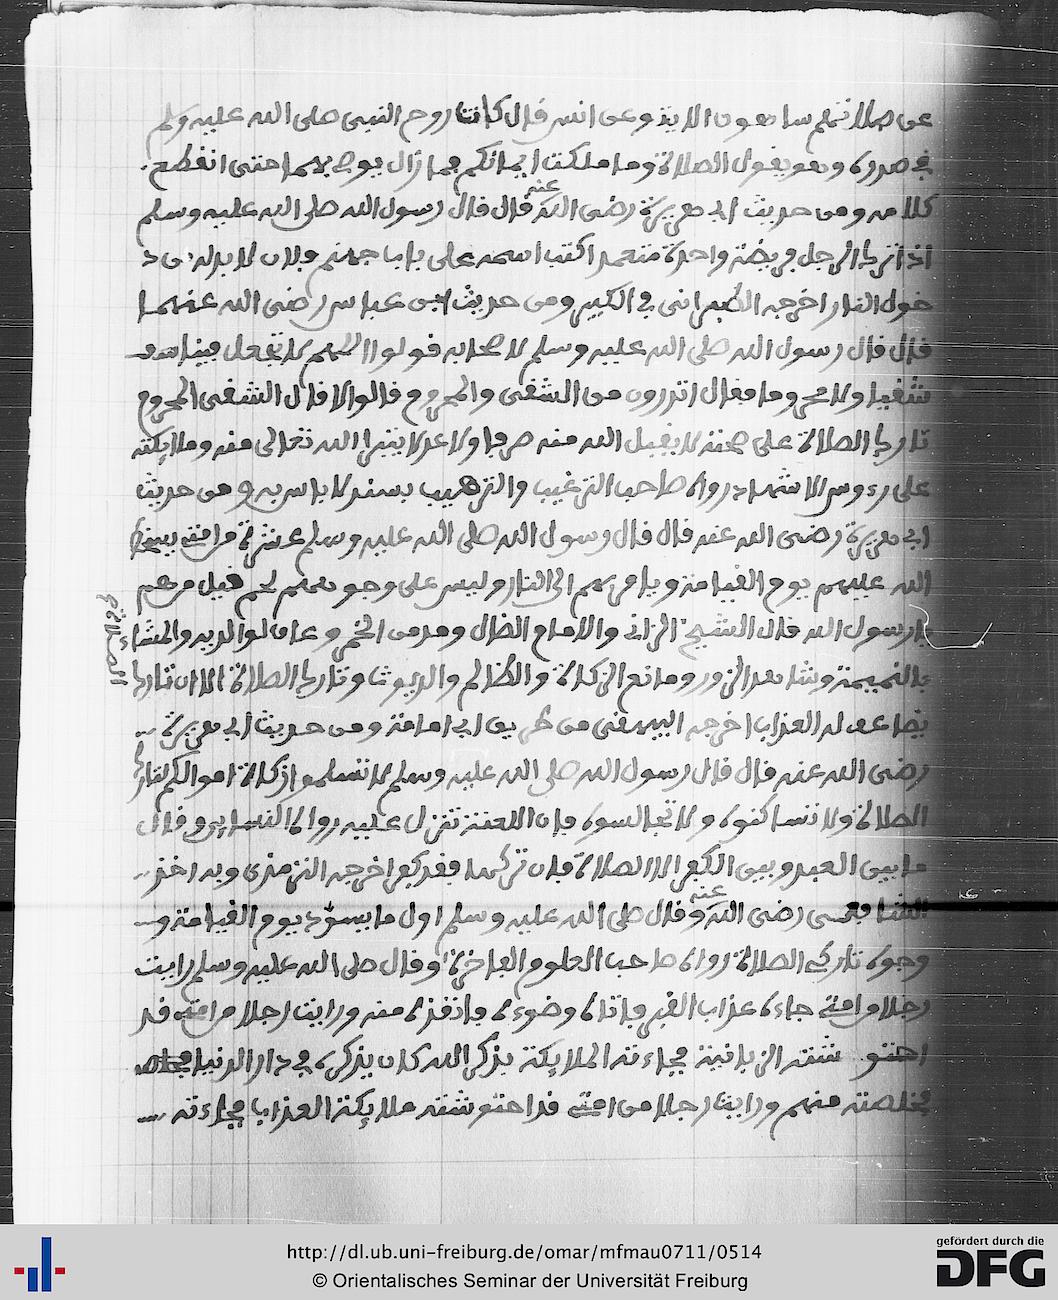 عن صلاتهم ساهون الاية وعن انس قال كانت روح النبي صلى الله عليه وسلم
في صدره وهو يقول الصلاة وما ملكت ايمانكم فما زال يوصي بهما حتى انقطع
كلامه ومن حديث ابي هريرة رضى الله عنه قال قال رسول الله صلى الله عليه وسلم
اذا ترك الرجل فريضة واحدة متعمدا كتب اسمه على باب جهنم فلان لا بد له من د
خول النار اخرجه الطبراني في الكبير ومن حديث ابن عباس رضى الله عنهما
قال قال رسول الله صلى الله عليه وسلم لاصحابه قولوا اللهم لا تجعل فينا
شقيا ولا محروما فقال اتدرون من الشقى والمحروم قالوا لا قال الشقى المحروم
تارك الصلاة على صحته لا يقبل الله منه صرفا ولا عدلا يتبرا الله تعالى منه وملايكته
على رءوس الاشهاد رواه صاحب الترغيب والترهيب بسند لا باس به ومن حديث
ابي هريرة رضى الله عنه قال قال رسول الله صلى الله عليه وسلم عشرة من امتي يسخط
الله عليهم يوم القيامة ويامر بهم الى النار وليس على وجوههم لحم قيل من هم
يا رسول الله قال الشيخ الزاني والامام الضال ومدمن الخمر وعاق لوالديه والمشاء
بالنميمة وشاهد الزور ومانع الزكاة والظالم والديوث وتارك الصلاة الا ان تارك
الصلاة
يضاعف له العذاب اخرجه البيهقى من طريق ابي امامة ومن حديث ابي هريرة
رضى الله عنه قال قال رسول الله صلى الله عليه وسلم لا تسلموا زكاة اموالكم لتارك
الصلاة ولا تساكنوه ولا تجالسوه فان اللعنة تنزل عليه رواه النساءي وقال
ما بين العبد وبين الكفر الا الصلاة فان تركها فقد كفر اخرجه الترمذى وبه اخذ
الشافعى رضى الله عنه وقال صلى الله عليه وسلم اول ما يسود يوم القيامة و
وجوه تاركي الصلاة رواه صاحب العلوم الفاخرة وقال صلى الله عليه وسلم رايت
رجلا من امتي جاءه عذاب القبر فاتاه وضوءه فانقذه منه ورايت رجلا من امتي قد
احتوشته الزبانية فجاءته الملايكة بذكر الله كان يذكره في دار الدنيا
فخلصته منهم ورايت رجلا من امتي قد احتوشته ملايكة العذاب فجاءته
http://dl.ub.uni-freiburg.de/omar/mfmau0711/0514
© Orientalisches Seminar der Universität Freiburg
gefördert durch die
DFG